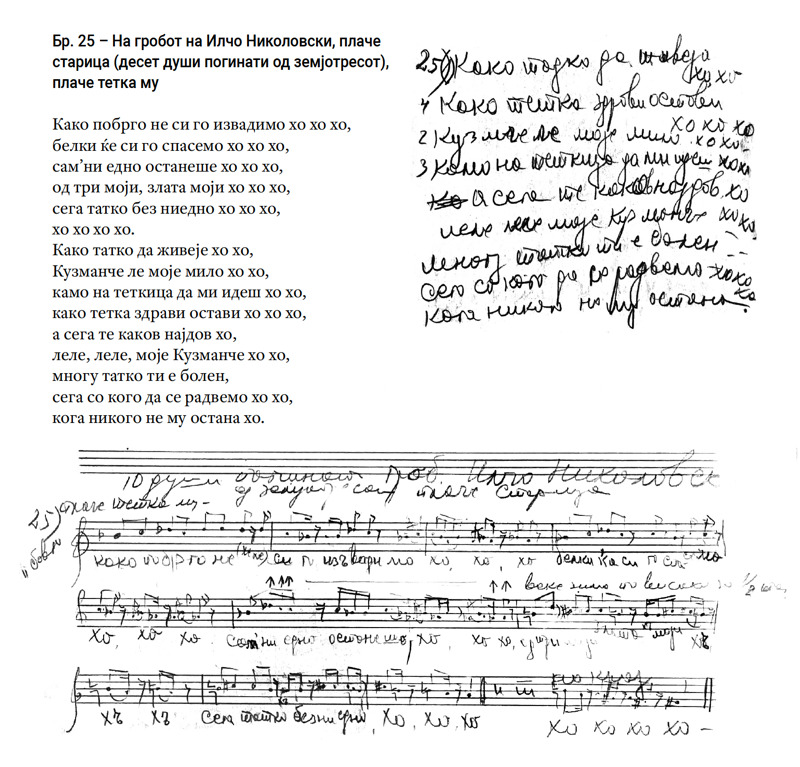 Бр. 25 – На гробот на Илчо Николовски, плаче
старица (десет души погинати од земјотресот),
плаче тетка му
Како побрго не си го извадимо хо хо хо,
белки ќе си го спасемо хо хо хо,
сам’ни едно останеше хо хо хо,
од три моји, злата моји хо хо хо,
сега татко без ниедно хо хо хо,
хо хо хо хо.
Како татко да живеје хо хо,
Кузманче ле моје мило хо хо,
камо на теткица да ми идеш хо хо,
како тетка здрави остави хо хо хо,
а сега те каков најдов хо,
леле, леле, моје Кузманче хо хо,
многу татко ти е болен,
сега со кого да се радвемо хо хо,
кога никого не му остана хо.
25) Како татко да живеја
хо хо
4 Како тетка здрави остави
хо хо хо
2 Кузманче ле моје мило хо хо
3 Камо на теткица да ми идеш хо хо
А сега те каков најдов хо
леле леле моје Кузманче хо хо
многу татко ти е болен
Сега со кого да се радвемо хо хо
Кога никого не му остана хо
10 души погинати Гроб. Илчо Николовск
плаче старица
25) плаче тетка му
како побрго не си го извадимо хо, хо, хо белки ќа си го
хо, хо хо Сам'ни едно останеше, хо, хо хо,
хъ хъ Сега татко безниедно, хо, хо, хо
хо хо хо хо –